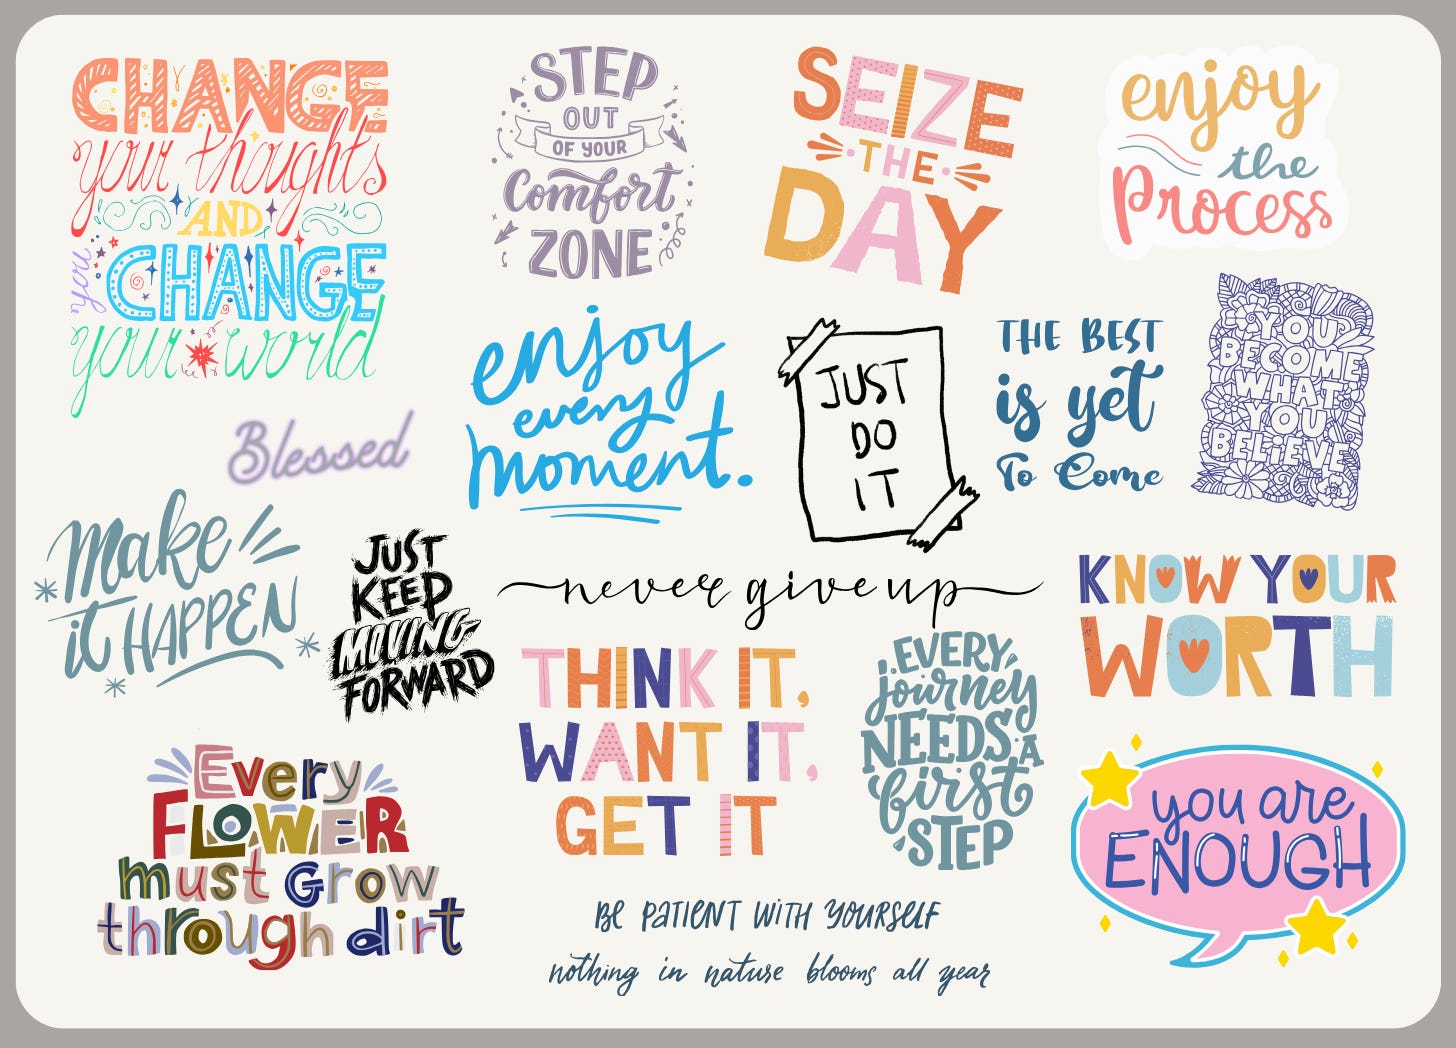 CHANGE
your thoughts
AND
you CHANGE
your world
STEP
OUT
OF YOUR
Comfort
ZONE
SEIZE
THE
DAY
enjoy
the
Process
Blessed
enjoy
every
moment.
JUST
DO
IT
THE BEST
is yet
To Come
YOU
BECOME
WHAT
YOU
BELIEVE
make
it HAPPEN
JUST
KEEP
MOVING
FORWARD
never give up
KNOW YOUR
WORTH
THINK IT,
WANT IT,
GET IT
EVERY
journey
NEEDS A
first
STEP
Every
FLOWER
must Grow
through dirt
you are
ENOUGH
BE PATIENT WITH YOURSELF
nothing in nature blooms all year